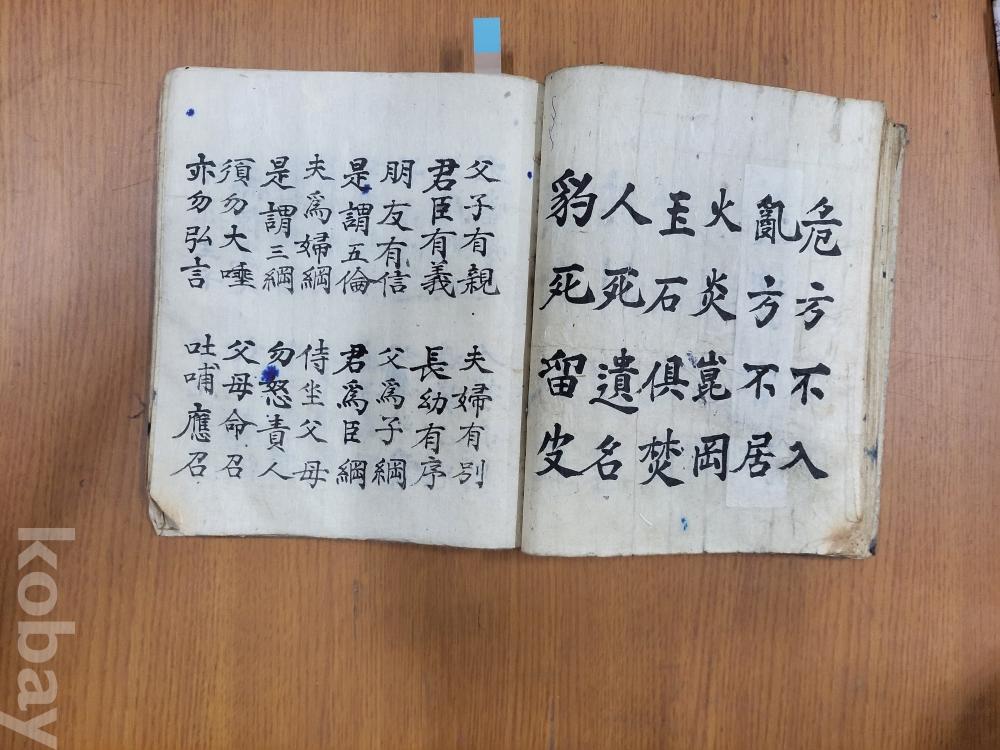 危方不入
亂方不居
火炎崑岡
玉石俱焚
人死遺名
豹死留皮
父子有親 夫婦有別
君臣有義 長幼有序
朋友有信 父爲子綱
是謂五倫 君爲臣綱
夫爲婦綱 侍坐父母
是謂三綱 勿怒責人
須勿大唾 父母命召
亦勿弘言 吐哺應召
kobay